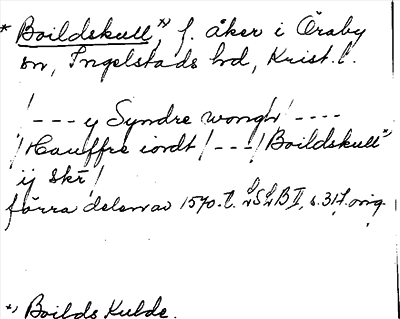 * Boildskull*) f. åker i Öraby
sn, Ingelstads hd, Krist. l.
/--- y Syndre wongh/----
/Hauffre iordt/---/ Boildskull*)
ij skr/
förra delen av 1570. t. LSLB II, s. 317. orig.
*) Boilds Kulde.